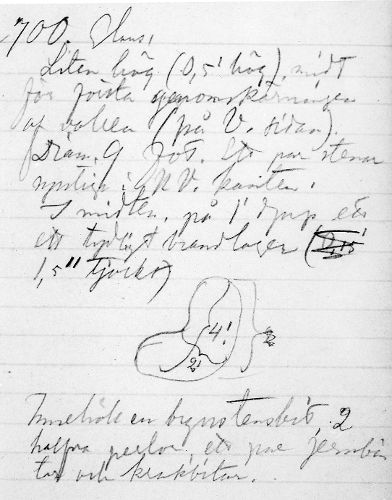 700. Hans.
Liten hög (0,5' hög), midt
för första genomskärningen
af vallen (på V. sidan).
Diam. 9 fot. Ett par stenar
synliga i NV. kanten.
I midten, på 1' djup, ett
ett tydligt brandlager (
1,5" tjockt)
4'
2'
Innehöll en brynstensbit, 2
halfva perlor, ett par jernbi
tar och krukbitar.